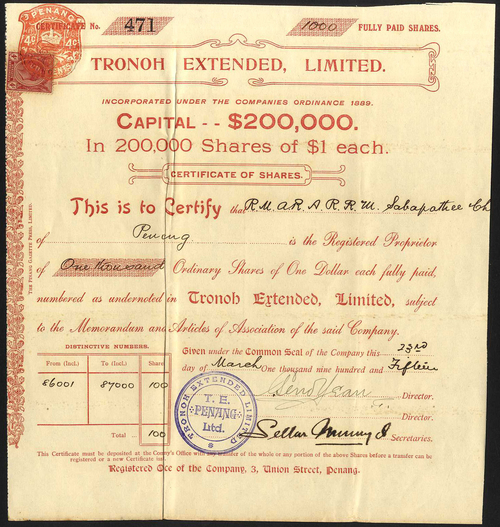 PENANG
CERTIFICATE No. 471 1000 FULLY PAID SHARES.
4¢ 4¢
TRONOH EXTENDED, LIMITED.
INCORPORATED UNDER THE COMPANIES ORDINANCE 1889.
CAPITAL -- $200,000.
In 200,000 Shares of $1 each.
CERTIFICATE OF SHARES.
This is to Certify that R.M.A.R.A.R.R.M. Sabapathee Ch
of Penang is the Registered Proprietor
of One thousand Ordinary Shares of One Dollar each fully paid,
numbered as undernoted in Tronoh Extended, Limited, subject
to the Memorandum and Articles of Association of the said Company.
THE PENANG GAZETTE PRESS, LIMITED.
DISTINCTIVE NUMBERS.
From (Incl.) To (Incl.) Share
86001 87000 100
Total .. 100
Given under the Common Seal of the Company this 23rd
day of March One thousand nine hundred and Fifteen
Director.
Director.
Secretaries.
TRONOH EXTENDED LIMITED
T. E.
PENANG
Ltd.
This Certificate must be deposited at the Comny's Office with any transfer of the whole or any portion of the above Shares before a transfer can be
registered or a new Certificate issd.
Registered Oce of the Company, 3, Union Street, Penang.